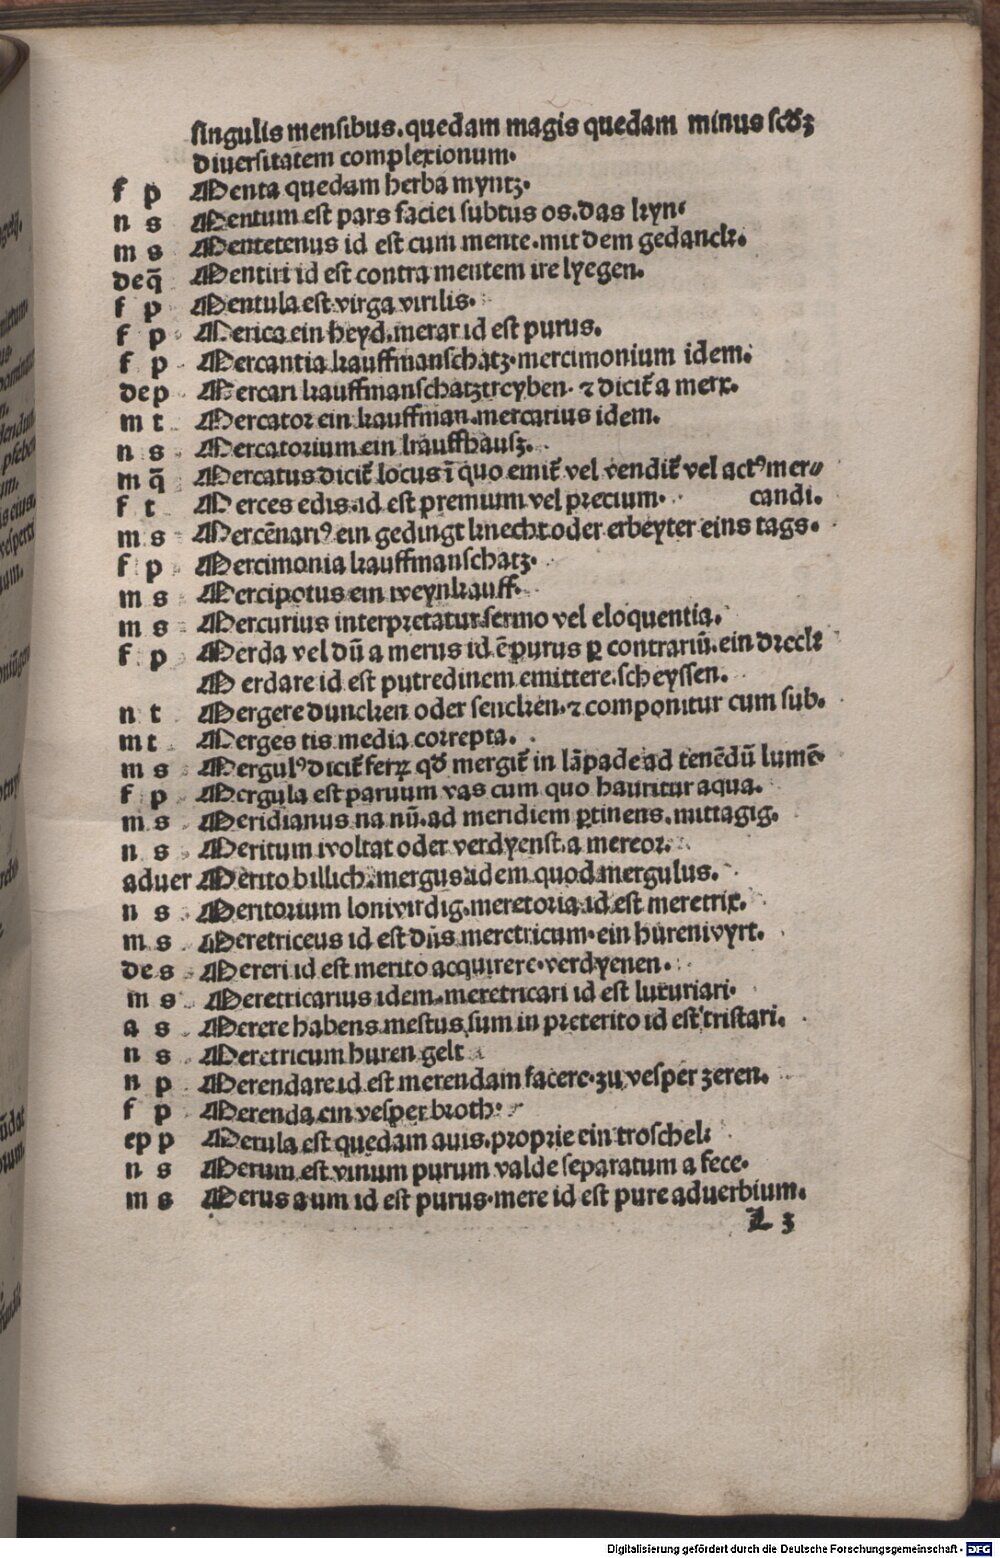 singulis mensibus. quedam magis quedam minus scḋꝫ
diuersitatem complexionum.
f p Menta quedam herba myntz.
n s Mentum est pars faciei subtus os. das kyn.
m s Mentetenus id est cum mente. mit dem gedanck.
de q̄ Mentiri id est contra mentem ire lyegen.
f p Mentula est virga virilis.
f p Merica ein heyd. merar id est purus.
f p Mercantia kauffmanschatz. mercimonium idem.
de p Mercari kauffmanschatz treyben. ⁊ dicit̃ a merx.
m t Mercator ein kauffman. mercarius idem.
n s Mercatorium ein kauffhausz.
m q̄ Mercatus dicit̃ locus ī quo emit̃ vel vendit̃ vel actꝰ mer⸗
f t Merces edis. id est premium vel precium. candi.
m s Mercēnariꝰ ein gedingt knecht oder erbeyter eins tags.
f p Mercimonia kauffmanschatz.
m s Mercipotus ein weynkauff.
m s Mercurius interpretatur sermo vel eloquentia.
f p Merda vel dū a merus id ē purus ꝑ contrariū. ein dreck
Merdare id est putredinem emittere. scheyssen.
n t Mergere duncken oder sencken. ⁊ componitur cum sub.
m t Merges tis media correpta.
m s Mergulꝰ dicit̃ ferꝝ qḋ mergit̃ in lāpade ad tenēdū lumē
f p Mergula est paruum vas cum quo hauritur aqua.
m s Meridianus na nū. ad meridiem ꝑtinens. mittagig.
n s Meritum woltat oder verdyenst. a mereor.
aduer Merito billich. mergus idem quod mergulus.
n s Meritorium lonwirdig. meretoria id est meretrix.
m s Meretriceus id est dn̄s meretricum. ein hurenwyrt.
de s Mereri id est merito acquirere. verdyenen.
m s Meretricarius idem. meretricari id est luxuriari.
a s Merere habens mestus sum in preterito id est tristari.
n s Meretricum huren gelt
n p Merendare id est merendam facere. zu vesper zeren.
f p Merenda ein vesper broth.
epp p Merula est quedam auis. proprie ein troschel:
n s Merum est vinum purum valde separatum a fece.
m s Merus a um id est purus. mere id est pure aduerbium.
L 3
Digitalisierung gefördert durch die Deutsche Forschungsgemeinschaft - DFG